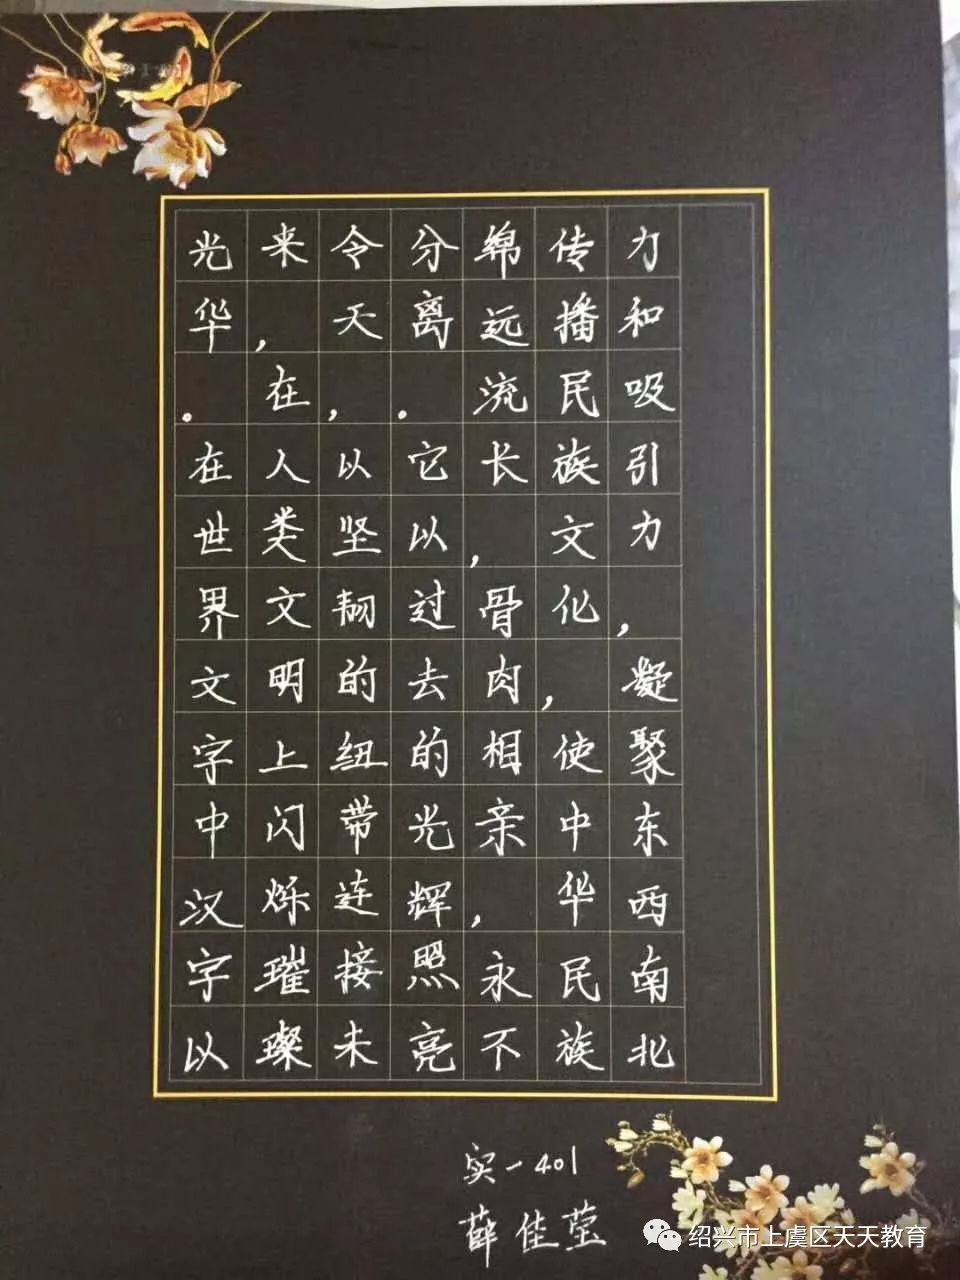 力和吸引力，凝聚东西南北
传播民族文化，使中华民族
绵远流长，骨肉相亲，永不
分离。它以过去的光辉照亮
令天，以坚韧的纽带连接未
来，在人类文明上闪烁璀璨
光华。在世界文字中汉字以
实一401
薛佳莹
绍兴市上虞区天天教育